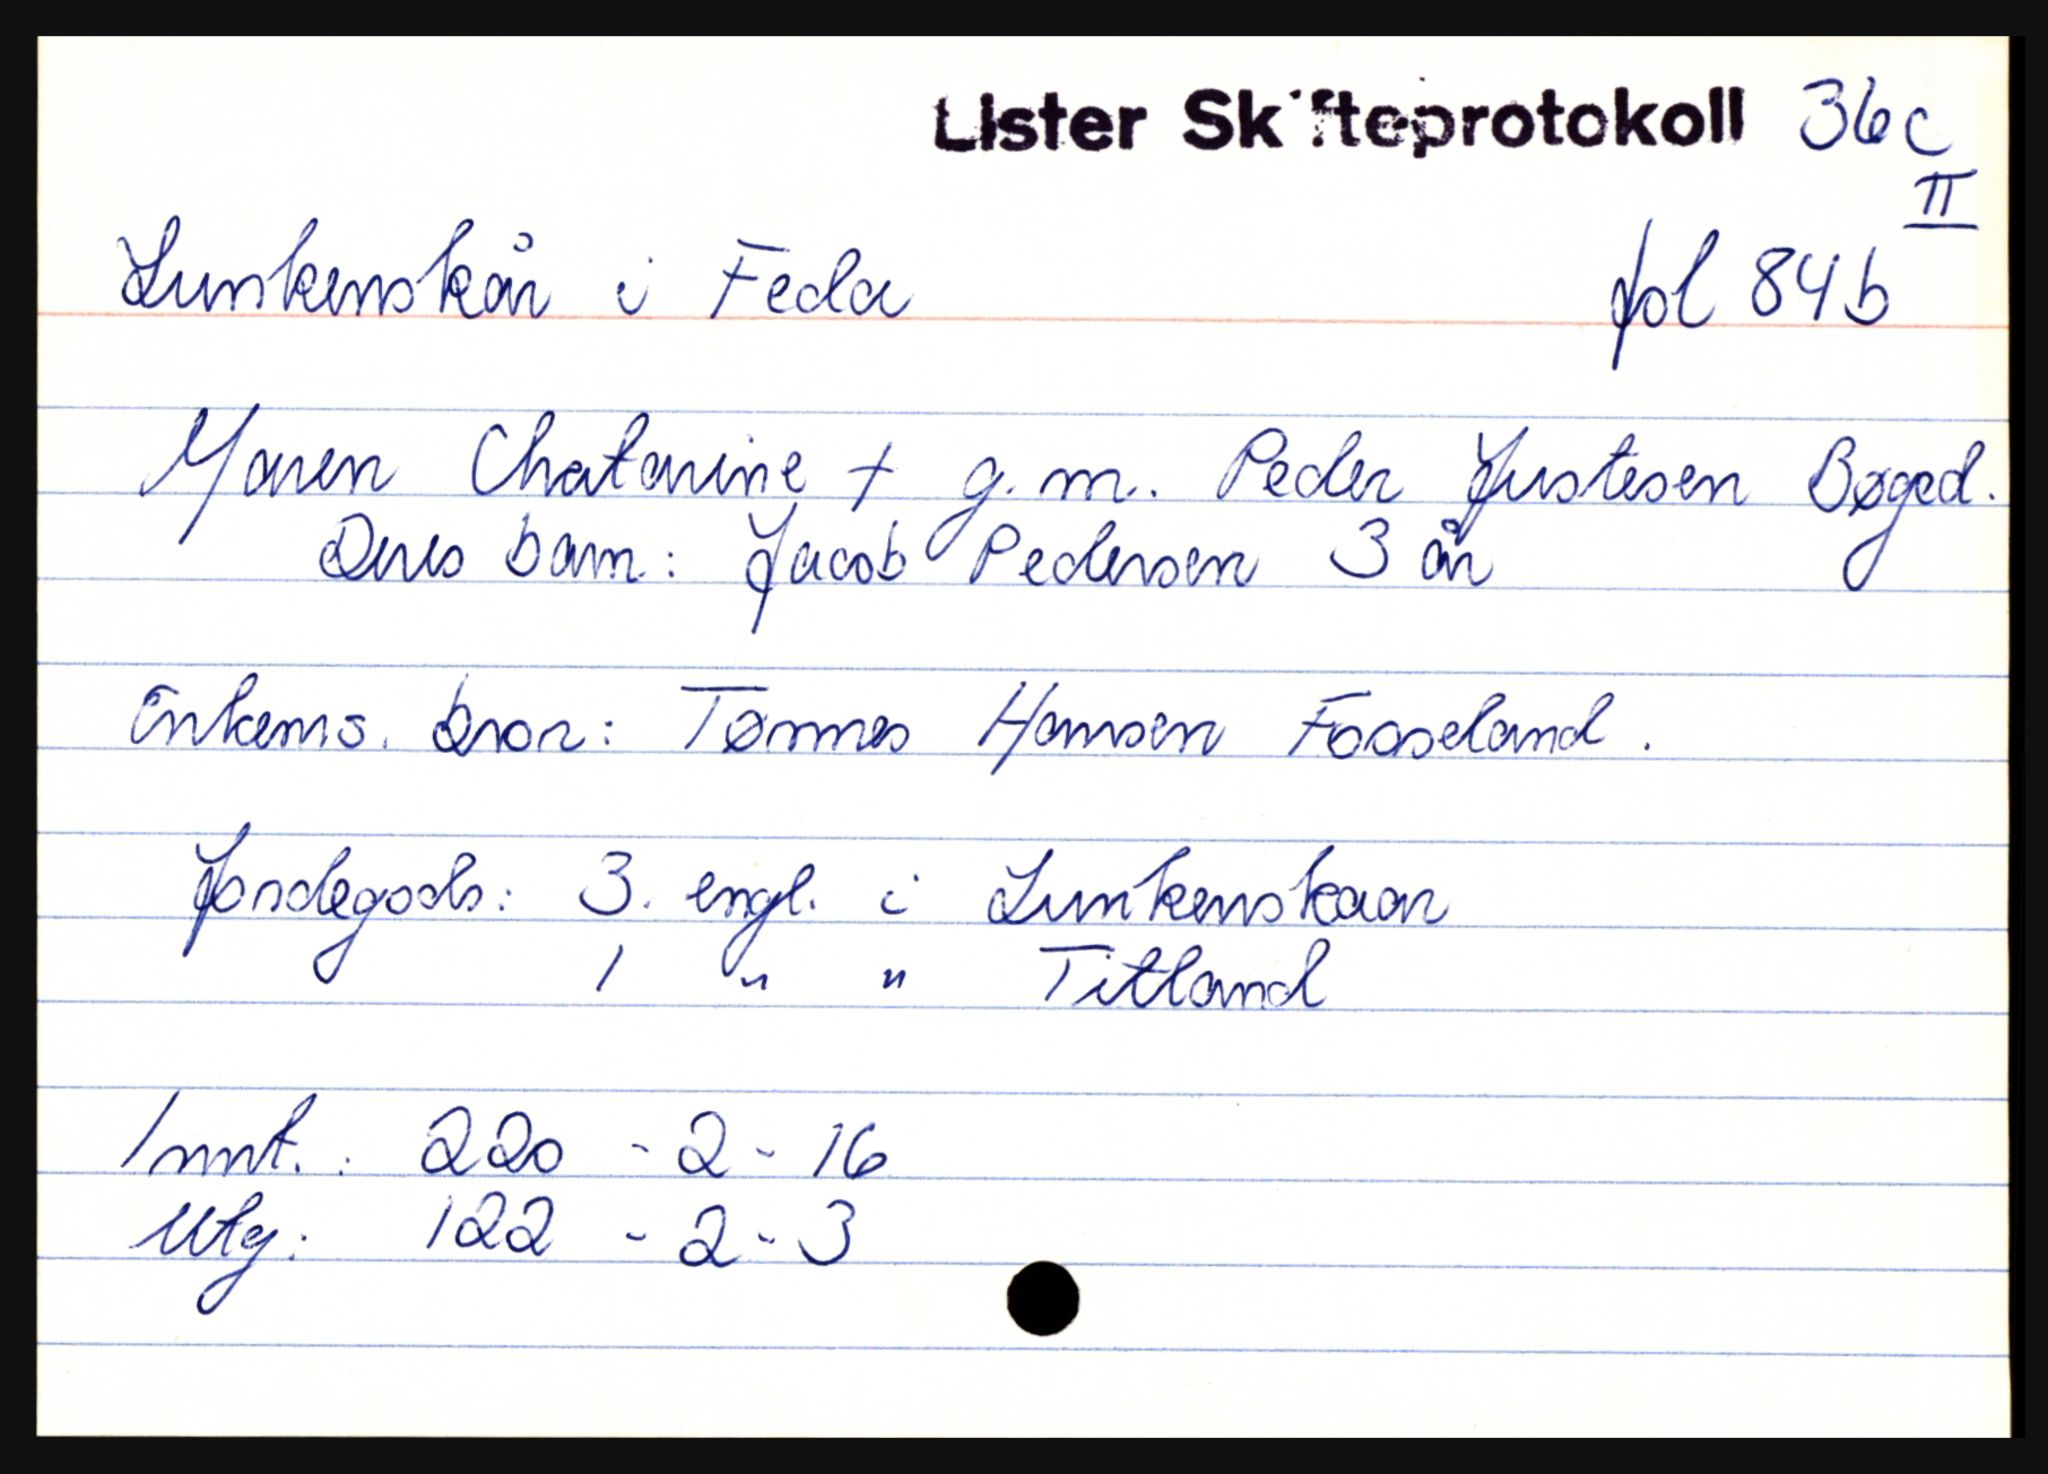 Lister Skifteprotokoll 36c
II
Lunkenskår i Feda fol 84b
Maren Chatarine + g.m. Peder Justesen Bøged.
Deres barn: Jacob Pedersen 3 år
Enkems. bror: Tønnes Hansen Fooseland.
Jordegods: 3. engl. i Lunkenskaar
1 " " Titland
Innt.: 220 - 2 - 16
Utg: 122 - 2 - 3